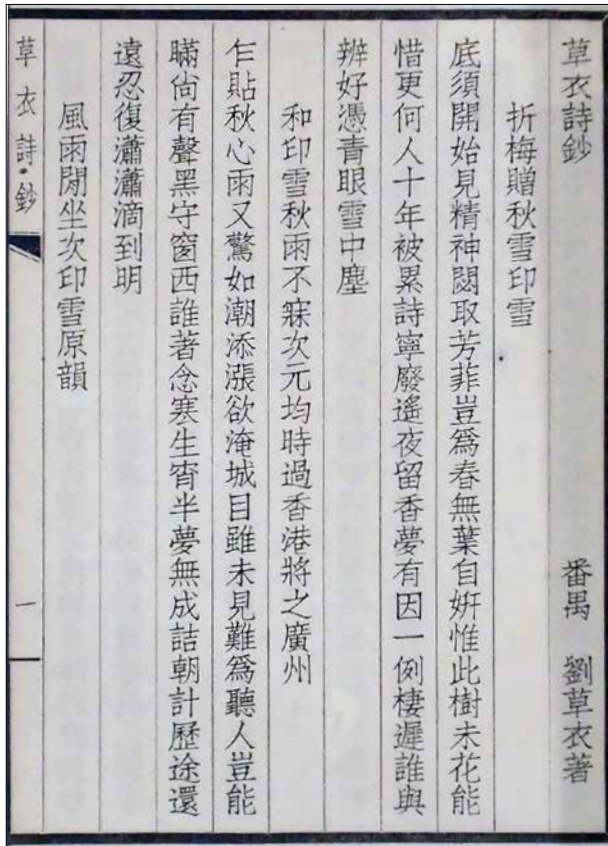 草衣詩鈔　番禺　劉草衣著
折梅贈秋雪印雪
底須開始見精神閟取芳菲豈爲春無葉自姸惟此樹未花能
惜更何人十年被累詩寧廢遙夜留香夢有因一例棲遲誰與
辨好憑青眼雪中塵
和印雪秋雨不寐次元均時過香港將之廣州
乍貼秋心雨又驚如潮添漲欲淹城目雖未見難爲聽人豈能
瞞尙有聲黑守窗西誰著念寒生宵半夢無成詰朝計歷途還
遠忍復瀟瀟滴到明
風雨閒坐次印雪原韻
草衣詩·鈔
一